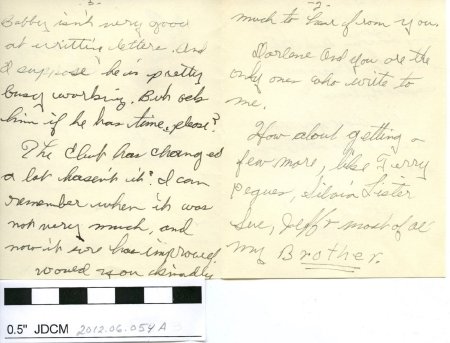 -3-
Bobby isn't very good
at writting letters. And
I suppose he is pretty
busy working. But ask
him if he has time, please?
The Club has changed
a lot hasen't it? I can
remember when it was
not very much, and
now it sure has improved.
would you kindly
-2-
much to hear from you.
Darlene and you are the
only ones who write to
me.
How about getting a
few more, like Terry
Pegues, Lister
Sue, Jeff & most of all
my Brother.
0.5" JDCM 2012.06.054A